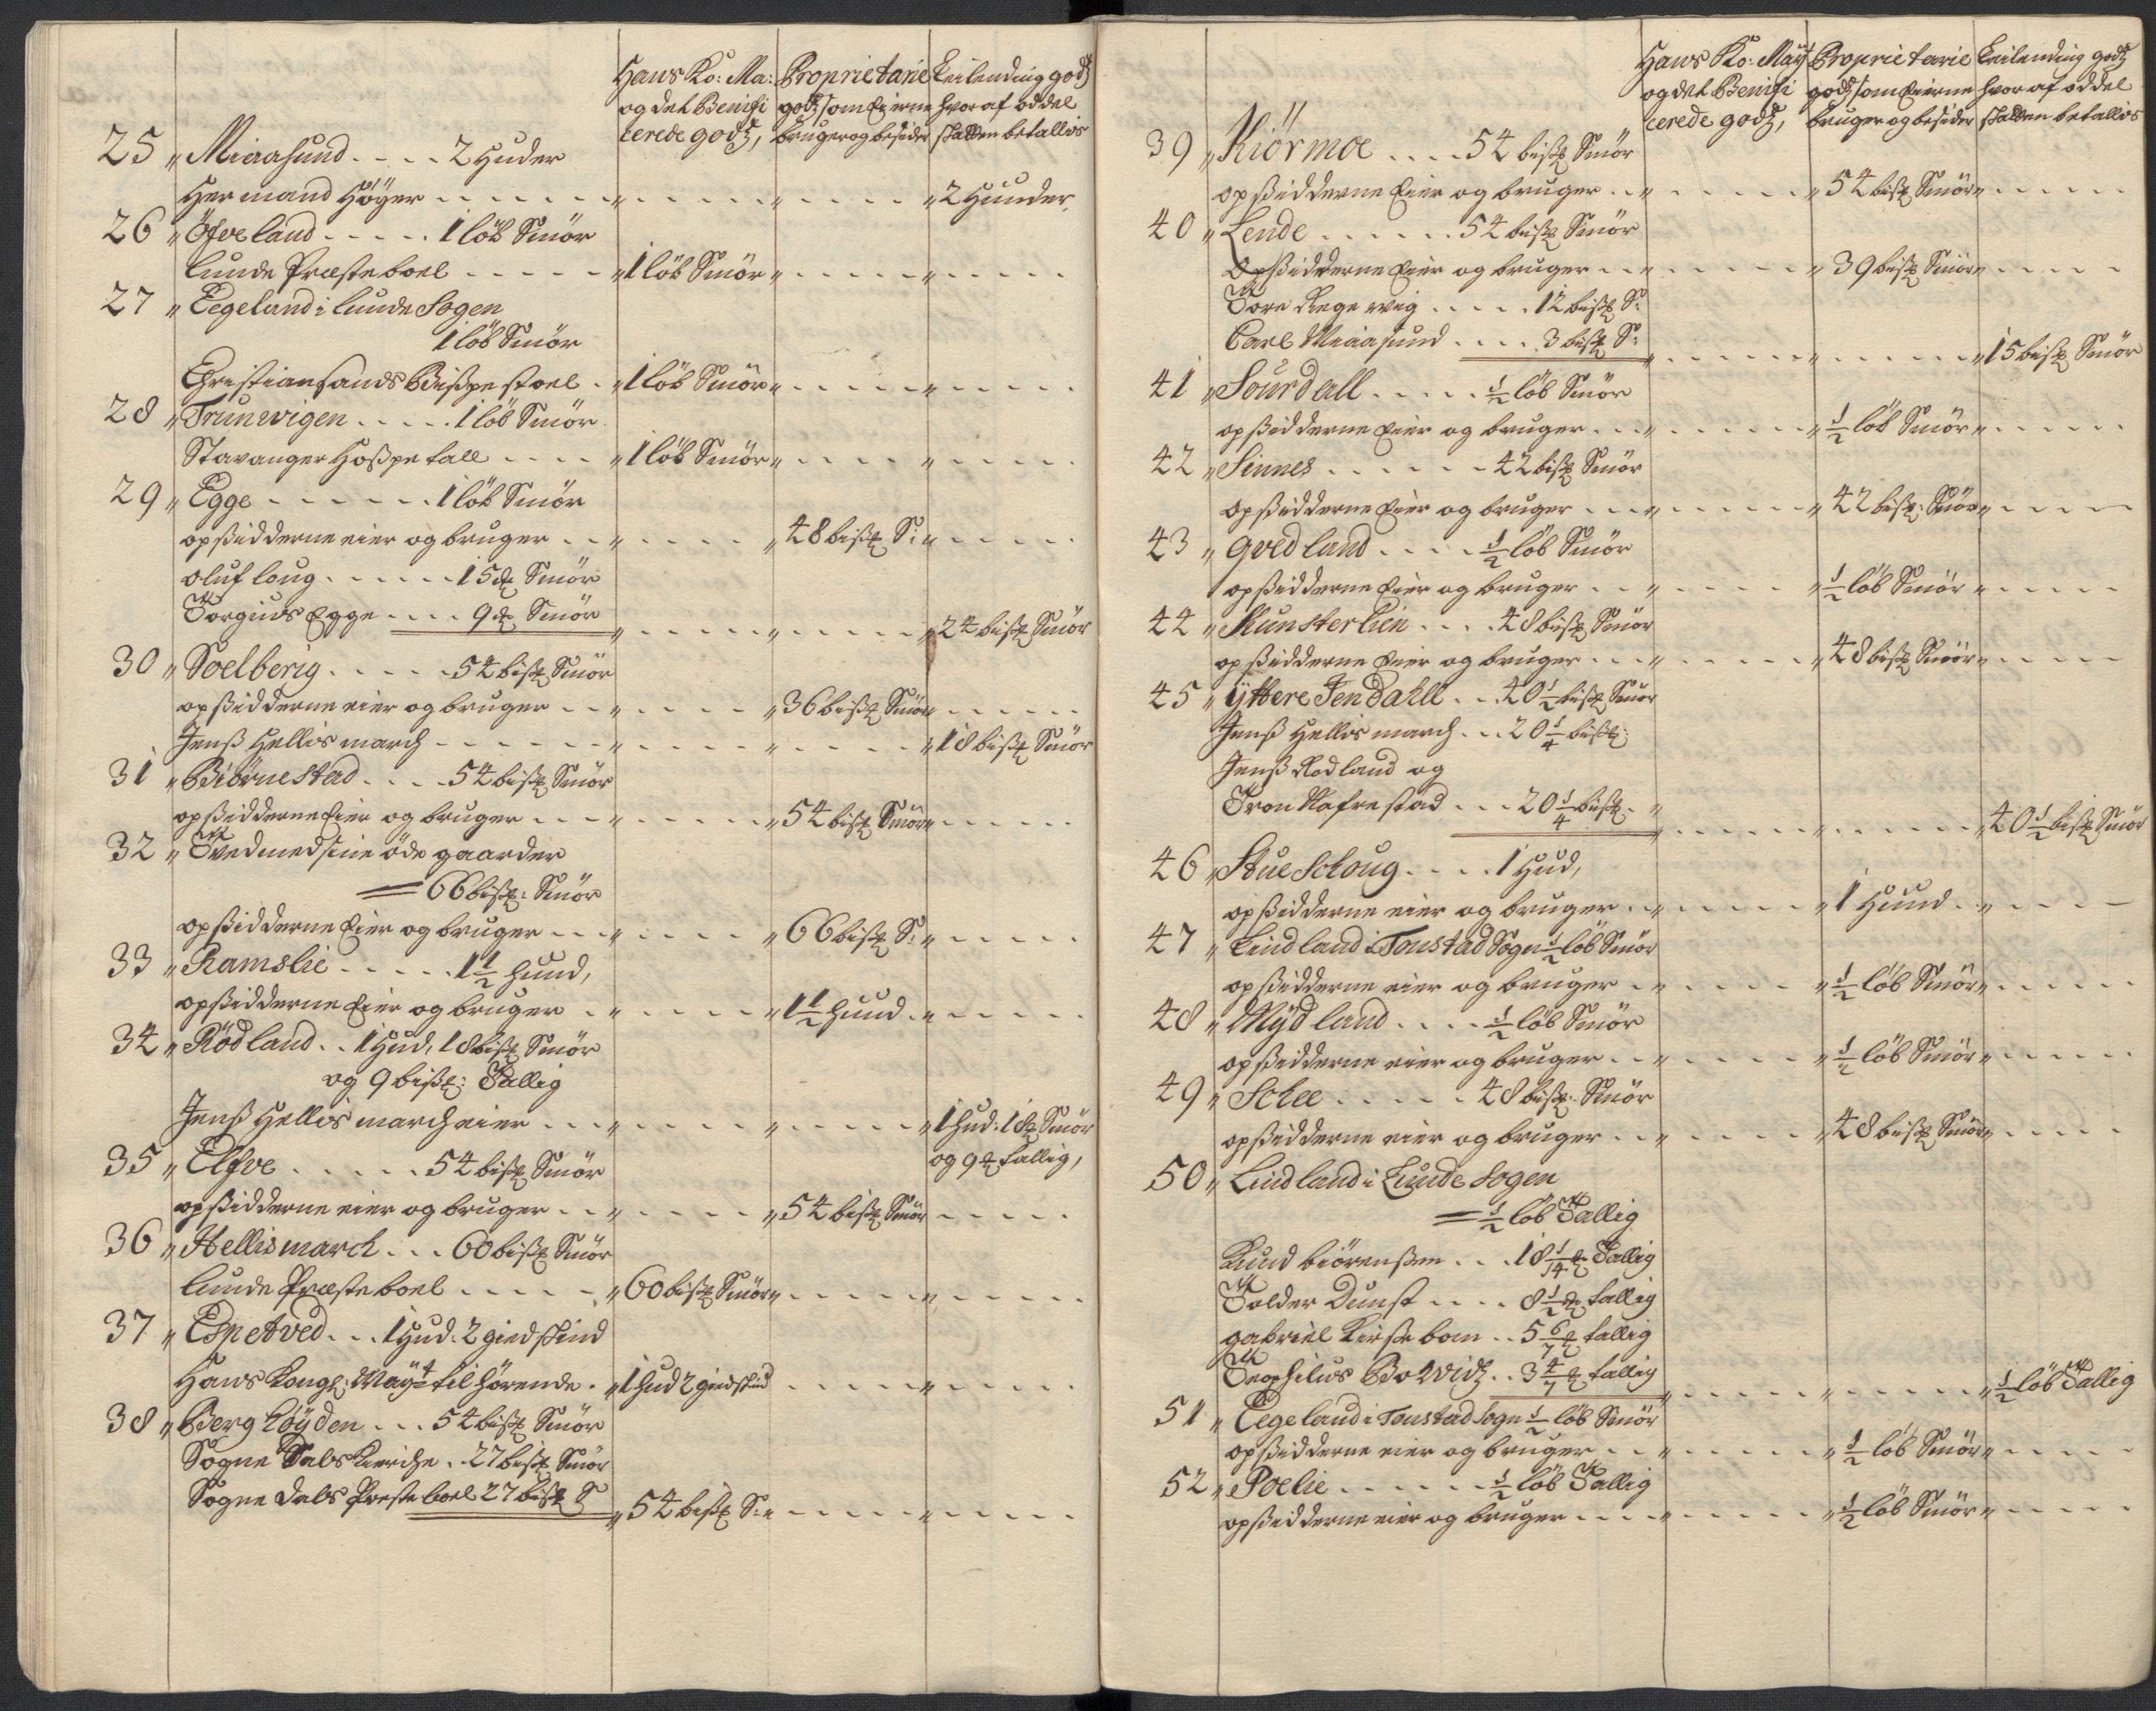 Hans Ko: Ma: og det Benifi cerede godtz,
Proprietarie godtz som Eierne bruger og besider
Leilending godtz hvor af oddel skatten betallis
25 „ Miaasund . . . . 2 Huder
Hermand Höyer . . . . „ . . . . „ . . . . „ 2 Huuder
26 „ Öfveland . . . . 1 löb Smör
Lunde Præsteboel . . . . „ 1 löb Smör „ . . . . „ . . . .
27 „ Eegeland i Lunde Sogen
1 löb Smör
Christiansands Bispe stoel . „ 1 löb Smör „ . . . . „ . . . .
28 „ Trunwigen . . . . 1 löb Smör
Stavanger Hospetall . . . . „ 1 löb Smör „ . . . . „ . . . .
29 „ Egge . . . . 1 löb Smör
opsidderne eier og bruger . . „ . . . . „ 48 bispd S: „ . . . .
Oluf loug . . . . 15 pd Smör
Torgiuls Egge . . . 9 pd Smör
„ . . . . „ . . . . „ 24 bispd Smör
30 „ Soelberig . . . . 54 bispd Smör
opsidderne eier og bruger . . „ . . . . „ 36 bispd Smör „ . . . .
Jens Hellis march . . . . „ . . . . „ . . . . „ 18 bispd Smör
31 „ Biörnestad . . . 54 bispd Smör
opsidderne Eier og bruger . . „ . . . . „ 54 bispd Smör „ . . . .
32 „ Tved med sine öde gaarder
= 66 bispd: Smör
opsidderne Eier og bruger . . „ . . . . „ 66 bispd S: „ . . . .
33 „ Ramslie . . . . 1 1/2 huud,
opsidderne Eier og bruger . . „ . . . . „ 1 1/2 huud . „ . . . .
34 „ Rödland . . 1 Hud, 18 bispd Smör
og 9 bispd: Tallig
Jens Hellis march eier . . . „ . . . . „ . . . . „ 1 hud: 18 pd Smör
og 9 pd tallig,
35 „ Elfve . . . . 54 bispd Smör
opsidderne eier og bruger . . „ . . . . „ 54 bispd Smör . . . .
36 „ Hellismarch . . . 60 bispd Smör
Lunde Præsteboel . . . . „ 60 bispd Smör „ . . . . „ . . . .
37 „ Espetved . . . 1 Hud: 2 giedskind
Hans Kongl: Mayt: tilhörende . „ 1 hud 2 giedskind . . . . „ . . . .
38 „ Berghöyden . . . 54 bispd Smör
Sogne Dals Kierche . . 27 bispd Smör
Sogne dals Preste boel 27 bispd S
„ 54 bispd S: „ . . . . „ . . . .
Hans Ko: Mayt og det Benifi cerede godtz,
Proprietarie godtz som Eierne bruger og besider
Leilending godtz hvor af oddel skatten betallis
39 „ Kiörmoe . . . . 54 bispd Smör
opsidderne Eier og bruger . . „ . . . . „ 54 bispd Smör „ . . . .
40 „ Lende . . . . 54 bispd Smör
Opsidderne Eier og bruger . . „ . . . . „ 39 bispd Smör „ . . . .
Tore Rege wig . . . . 12 bispd S:
Carl Miaasund . . . . 3 bispd S:
„ . . . . „ . . . . „ 15 bispd Smör
41 „ Sourdall . . . . 1/2 löb Smör
opsidderne Eier og bruger . . „ . . . . „ 1/2 löb Smör „ . . . .
42 „ Sinnes . . . . 42 bispd Smör
opsidderne Eier og bruger . . „ . . . . „ 42 bispd: Smör „ . . . .
43 „ Qvedland . . . . 1/2 löb Smör
opsidderne Eier og bruger . . „ . . . . „ 1/2 löb Smör „ . . . .
44 „ Kunsterlien . . . . 48 bispd Smör
opsidderne Eier og bruger . . „ . . . . „ 48 bispd Smör „ . . . .
45 „ Yttere Jendahll . . 40 1/2 bispd Smör
Jens Hellis march . . . 20 1/4 bispd:
Jens Rodland og
Tron Nafrestad . . . 20 1/4 bispd: „
„ . . . . „ . . . . „ 40 1/2 bispd Smör
46 „ Stueschoug . . . . 1 Hud,
opsidderne eier og bruger . . „ . . . . „ 1 Huud . . „ . . . .
47 „ Lindland i Tonstad Sogn 1/2 löb Smör
opsidderne eier og bruger . . „ . . . . „ 1/2 löb Smör „ . . . .
48 „ Mÿdland . . . . 1/2 löb Smör
opsidderne eier og bruger . . „ . . . . „ 1/2 löb Smör „ . . . .
49 „ Schee . . . . 48 bispd: Smör
opsidderne eier og bruger . . „ . . . . „ 48 bispd Smör „ . . . .
50 „ Lindland i Lunde Sogen
= 1/2 löb Tallig
Knud biörensen . . . 18 1/14 pd Tallig
Tolder Dunst . . . . 8 1/2 pd tallig
gabriel Kirsebom . . 5 6/7 pd tallig
Teophilus Bowidtz . . 3 4/7 pd tallig
„ . . . . „ . . . . „ 1/2 löb Tallig
51 „ Eegeland i Tonstad Sogn 1/2 löb Smör
opsidderne eier og bruger . . „ . . . . „ 1/2 löb Smör „ . . . .
52 „ Poelie . . . . 1/2 löb Tallig
opsidderne eier og bruger . . . „ . . . . „ 1/2 löb Smör „ . . . .